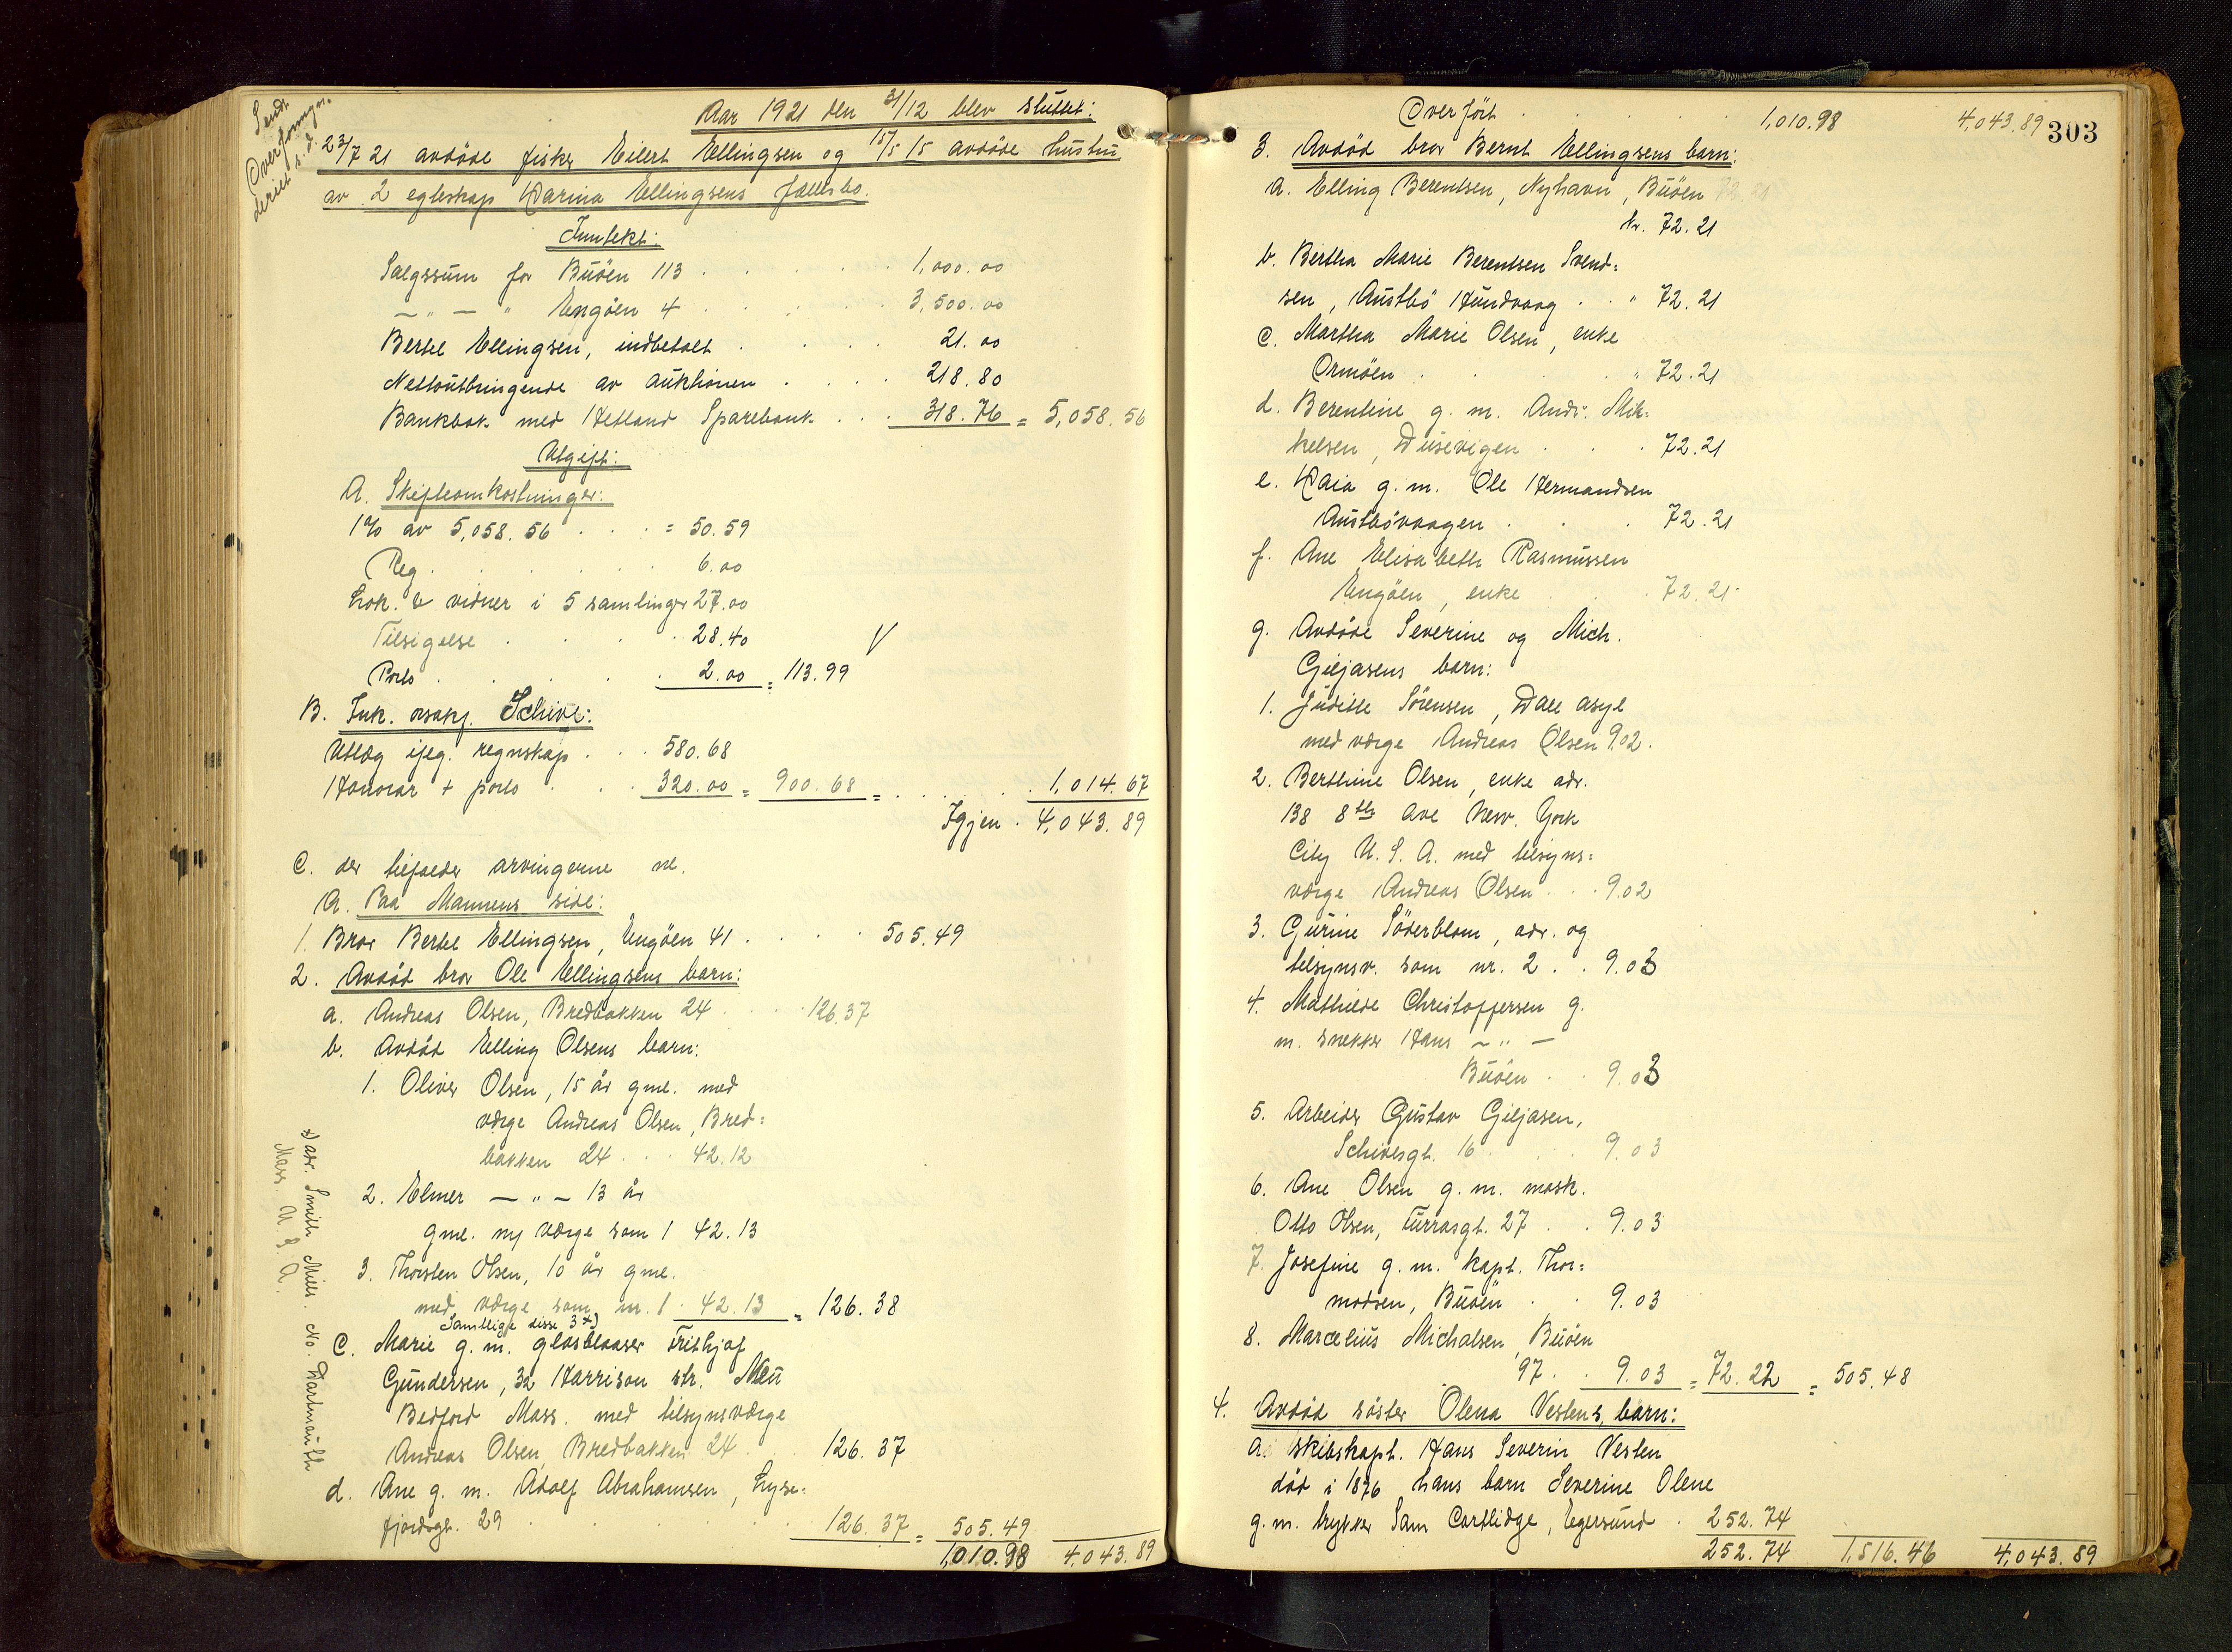 Sendt
Overform.
s. d.
Aar 1921 den 31/12 blev sluttet:
23/7 21 avdöde fisker Eilert Ellingsen og 15/5 15 avdöde hustru
av 2 egteskap Karina Ellingsens fællesbo.
Inntekt:
Salgssum for Buöen 113 . . . . . 1,000.00
— " — " Engöen 4 . . . . 3,500.00
Bertel Ellingsen, indbetalt . . . . 21.00
Nettoutbringende av auktionen . . . . 218.80
Bankbok med Hetland Sparebank . . 318.76 = 5,058.56
Utgift:
A. Skifteomkostninger:
1% av 5,058.56 . . . = 50.59
Reg. . . . . . . 6.00
Lok. & vidner i 5 samlinger 27.00
Tilsigelse . . . . 28.40 V
Porto . . . . . 2.00 = 113.99
B. Ink. orsakf. Schive:
Utlæg ifølg. regnskap . . . 580.68
Honorar + porto . . . 320.00 = 900.68 = . . . . 1,014.67
Igjen . 4,043.89
C. der tilfalder arvingerne nl.
A. Paa Mannens side:
1. Bror Bertel Ellingsen, Engöen 41 . . . . . 505.49
2. Avdöd bror Ole Ellingsens barn:
a. Andreas Olsen, Bredbakken 24 . . . . 126.37
b. Avdöd Elling Olsens barn:
1. Oliver Olsen, 15 år gml. med
værge Andreas Olsen, Bred=
bakken 24 . . . 42.12
2. Elmer — " — 13 år
gml. mf værge som 1 42.13
3. Thorsten Olsen, 10 år gml.
med værge som nr. 1 . 42.13 = 126.38
Samtlige disse 3 x)
c. Marie g. m. glasblaaser Frithjof
Gundersen, 32 Harrison str. Neu
Bedford Mass. med tilsynsværge
Andreas Olsen, Bredbakken 24 . . 126.37
d. Ane g. m. Adolf Abrahamsen, Lyse=
fjordsgt. 29 . . . . . . 126.37 = 505.49
1,010.98 4,043.89
x) adr. Smith Mills. No. Dartmauth
Mass. U. S. A.
303
Overfört . . . . . . 1,010.98 4,043.89
3. Avdöd bror Bernt Ellingsens barn:
a. Elling Berentsen, Nyhavn, Buöen
kr. 72.21
b. Bertha Marie Berentsen Svend=
sen, Austbö Hundvaag . . " 72.21
c. Martha Marie Olsen, enke
Ormöen . . . . " 72.21
d. Berentine g. m. Andr. Mik=
kelsen, Dusevigen . . . 72.21
e. Kaia g. m. Ole Hermandsen
Austbövaagen . . . 72.21
f. Ane Elisabeth Rasmussen
Engöen, enke . . . 72.21
g. Avdöde Severine og Mich.
Giljasens barn:
1. Judithe Sörensen, Dale asyl
med værge Andreas Olsen 9.02.
2. Berthine Olsen, enke adr.
138 8th Ave New. York
City U. S. A. med tilsyns=
værge Andreas Olsen . . . 9.02
3. Gurine Söderblom, adr. og
tilsynsv. som nr. 2 . . 9.03
4. Mathilde Christoffersen g.
m. snekker Hans — " —
Buöen . . 9.03
5. Arbeider Gustav Giljasen,
Schivesgt. 16 . . . . 9.03
6. Ane Olsen g. m. mask.
Otto Olsen, Turrasgt. 27 . . 9.03
7. Josefine g. m. kapt. Thor=
modsen, Buöen . . 9.03
8. Marcelius Michalsen, Buöen
97 . . 9.03 = 72.22 = 505.48
4. Avdöd söster Olena Vestens barn:
a. skibskapt. Hans Severin Vesten
död i 1876 hans barn Severine Olene
g. m. trykker Sam Cartlidge, Egersund . 252.74
252.74 1,516.46 4,043.89